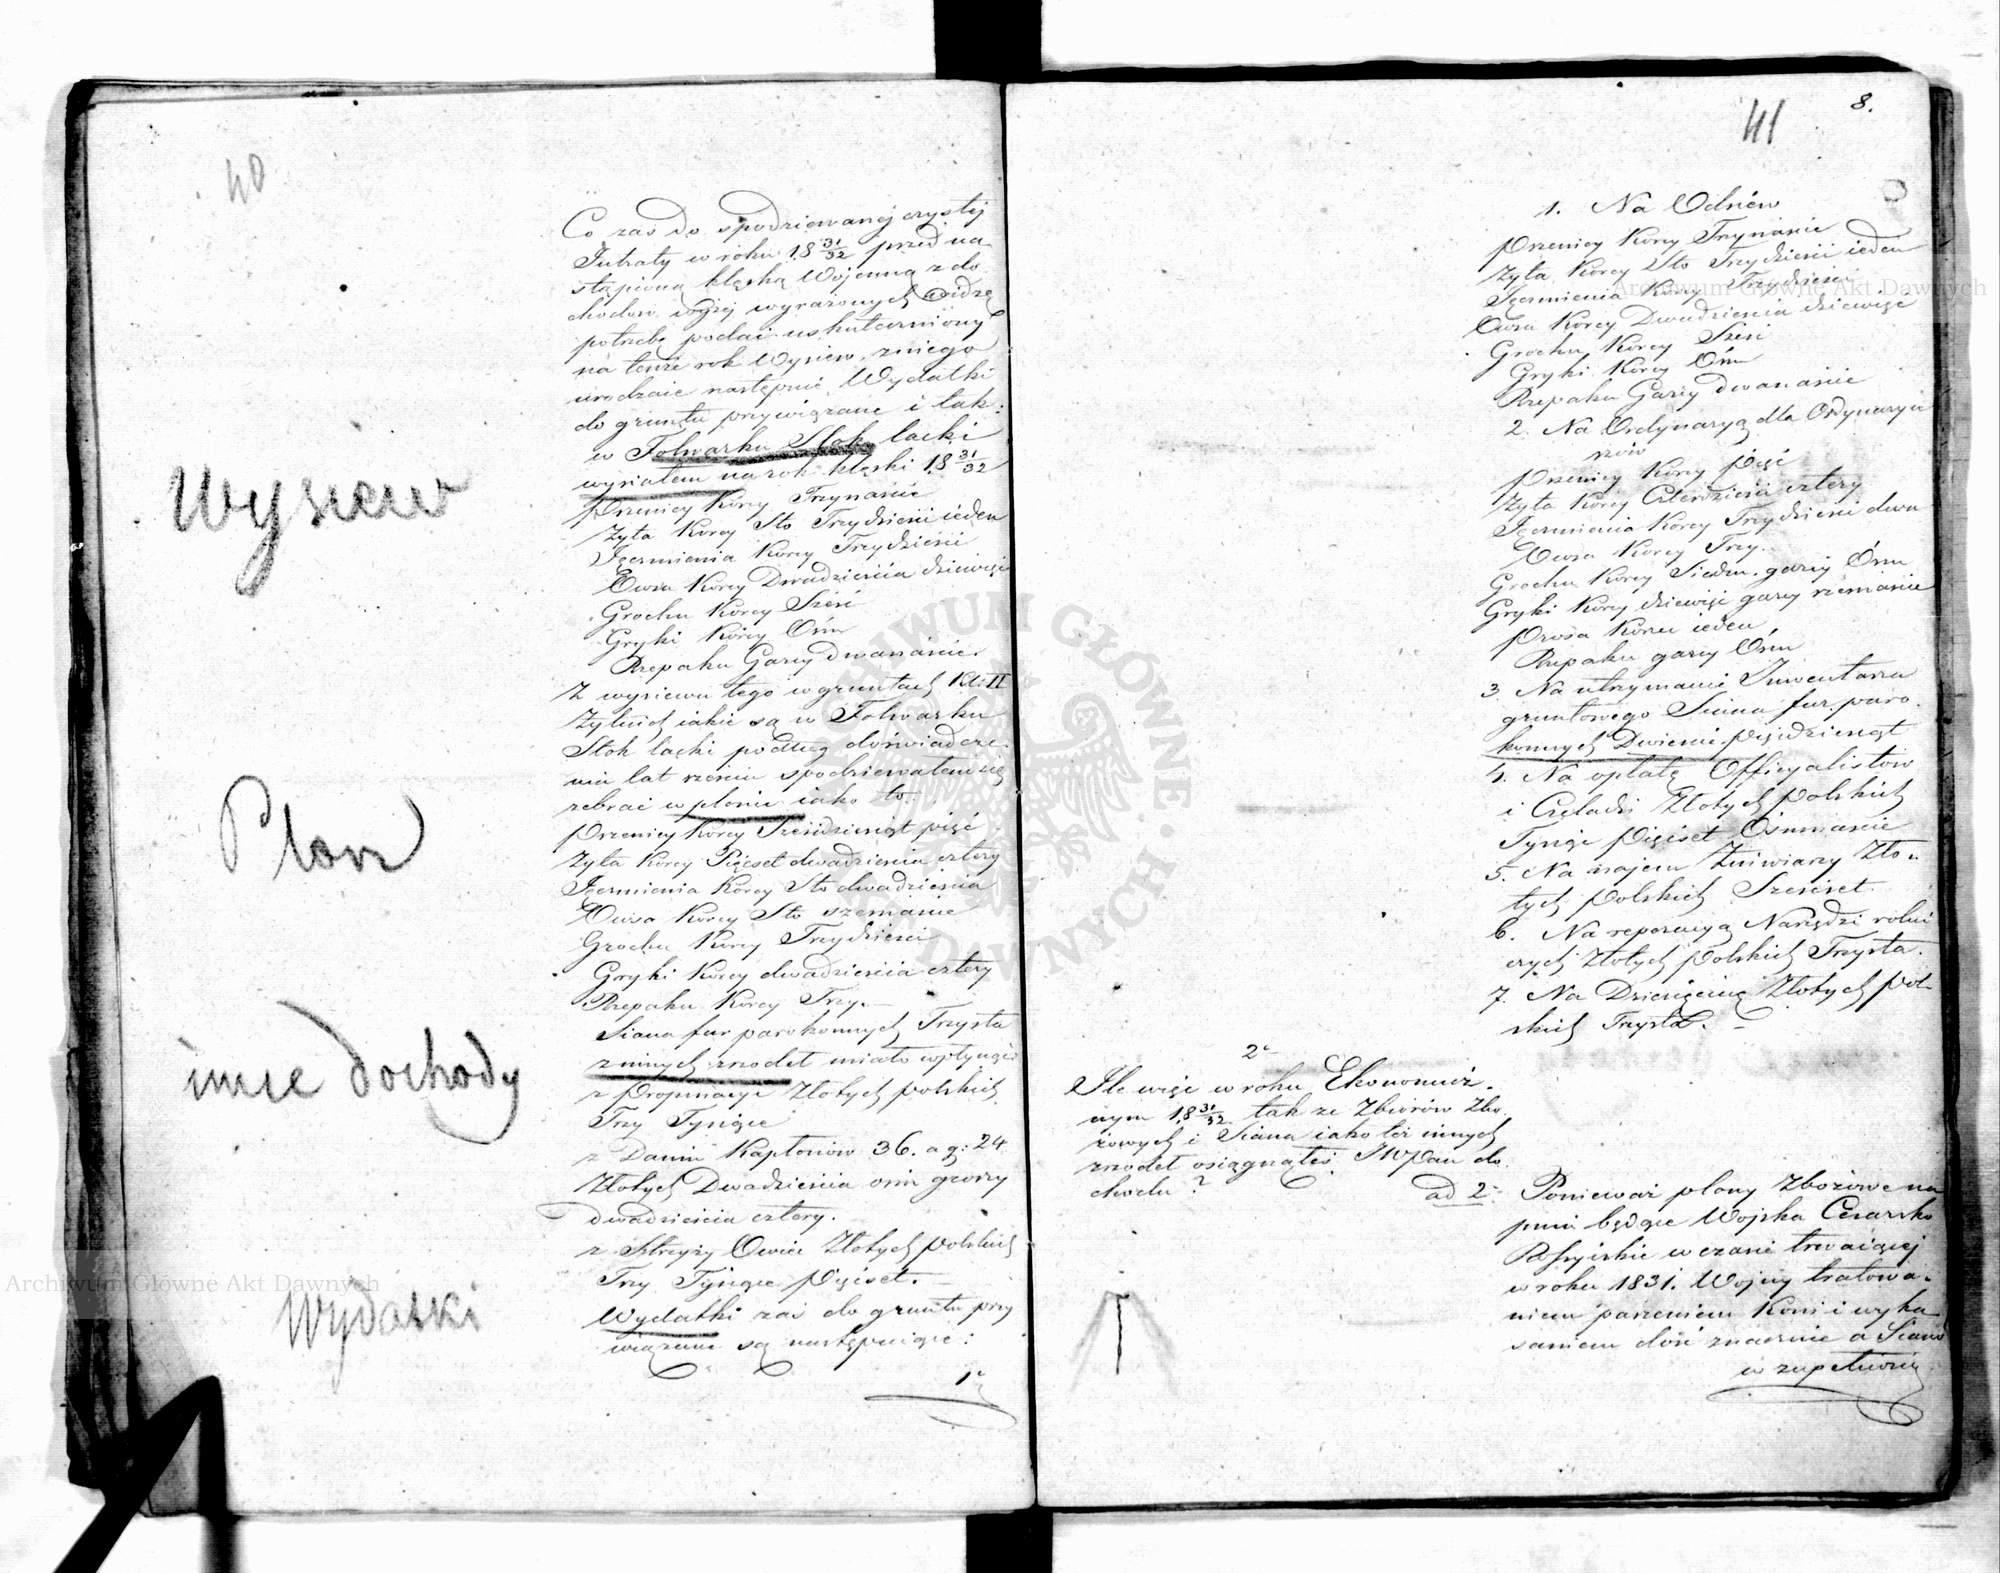 40
Co zaś do spodziewanej czystej
Intraty w roku 18 31/32 przed na-
stąpioną klęską Wojenną z do
chodów wyżej wyrażonych widzę
potrzebę podać uskuteczniony
na tenże rok Wysiew, z niego
urodzaie następnie Wydatki
do gruntu przywiązane i tak:
w Folwarku Stok lacki
wysiałem na rok klęski 18 31/32
Pszenicy Korcy Trzynaście
Żyta Korcy Sto Trzydzieści ieden
Jęczmienia Korcy Trzydzieści
Owsa Korcy Dwadzieścia dziewięć
Grochu Korcy Sześć
Gryki Korcy Ośm
Rzepaku Garcy dwanaście.
Z wysiewu tego w gruntach Kl: II
Żytnich iakie są w Folwarku
Stok lacki podług doświadcze-
nia lat sześciu spodziewałem się
zebrać w plonie iako to.
Pszenicy Korcy Sześćdziesiąt pięć
Żyta Korcy Pięćset dwadzieścia cztery
Jęczmienia Korcy Sto dwadzieścia
Owsa Korcy Sto szesnaście
Grochu Korcy Trzydzieści
Gryki Korcy dwadzieścia cztery
Rzepaku Korcy Trzy.
Siana fur parokonnych Trzysta
z innych źrodeł miało wpłynąć
z Propinacyi Złotych polskich
Trzy Tysiące
z Danin Kapłonów 36. a g: 24
Złotych Dwadzieścia ośm groszy
dwadzieścia cztery.
z Strzyży Owiec Złotych polskich
Trzy Tysiące Pięćset.
Wydatki zaś do gruntu przy
wiązane są następuiące:
1°
Wysiew
Plon
inne dochody
Wydatki
8.
41
1. Na Odsiew
Pszenicy Korcy Trzynaście
Żyta Korcy Sto Trzydzieści ieden
Jęczmienia Korcy Trzydzieści
Owsa Korcy Dwadzieścia dziewięć
Grochu Korcy Sześć
Gryki Korcy Ośm
Rzepaku Garcy dwanaście
2. Na Ordynaryą dla Ordynaryu
szów
Pszenicy Korcy Pięć
Żyta Korcy Czterdzieści cztery
Jęczmienia Korcy Trzydzieści dwa
Owsa Korcy Trzy.
Grochu Korcy Siedm garcy Ośm
Gryki Korcy dziewięć garcy szesnaście
Prosa Korzec ieden
Rzepaku garcy Ośm
3. Na utrzymanie Inwentarza
gruntowego Siana fur paro-
konnych Dwieście pięćdziesiąt
4. Na opłatę Officyalistów
i Czeladzi Złotych Polskich
Tysiąc Pięćset Ośmnaście
5. Na najem Żniwiarzy Zło-
tych Polskich Sześćset
6. Na reperacyą Narzędzi rolni
czych Złotych Polskich Trzysta.
7. Na Dziesięcinę Złotych Pol-
skich Trzysta.
2°
Ile więc w roku Ekonomicz-
nym 18 31/32 tak ze Zbiorów Zbo-
żowych i Siana iako też innych
źrodeł osiągnąłeś JWPan do-
chodu?
ad 2° Ponieważ plony Zbożowe na
pniu będące Wojska Cesarsko
Rossyiskie w czasie trwaiącej
w roku 1831. Wojny tratowa-
niem pasieniem Koni i wyka
saniem dość znacznie a Siano
w zupełności